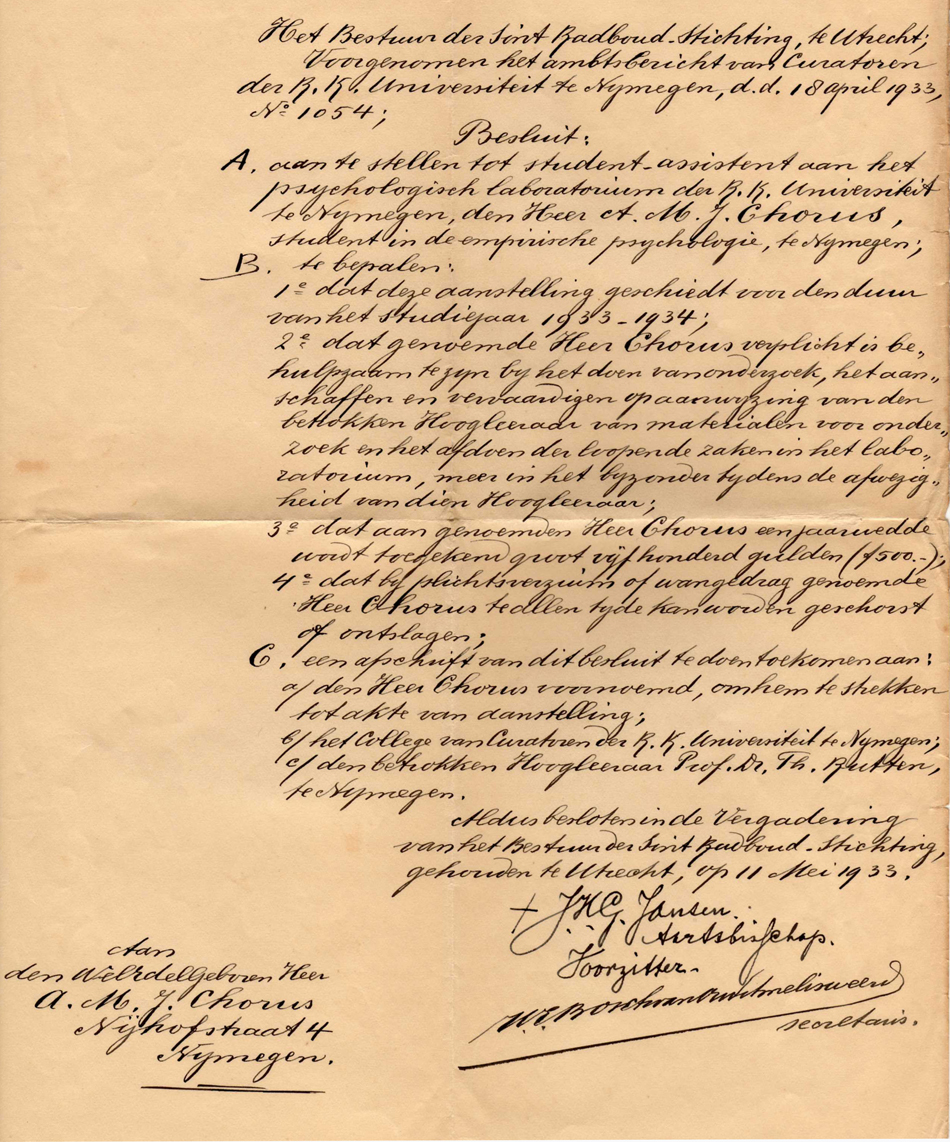 Het Bestuur der Sint Radboud-Stichting, te Utrecht;
Voorgenomen het ambtsbericht van Curatoren
der R. K. Universiteit te Nymegen, d.d. 18 april 1933,
No 1054;
Besluit:
A. aan te stellen tot student-assistent aan het
psychologisch laboratorium der R. K. Universiteit
te Nymegen, den Heer A. M. J. Chorus,
student in de empirische psychologie, te Nymegen;
B. te bepalen:
1e dat deze aanstelling geschiedt voor den duur
van het studiejaar 1933-1934;
2e dat genoemde Heer Chorus verplicht is be„
hulpzaam te zyn by het doen van onderzoek, het aan„
schaffen en vervaardigen op aanwyzing van den
betrokken Hoogleeraar van materialen voor onder„
zoek en het afdoen der loopende zaken in het labo„
ratorium, meer in het byzonder tydens de afwezig„
heid van dien Hoogleeraar;
3e dat aan genoemden Heer Chorus een jaarwedde
wordt toegekend groot vijf honderd gulden (f500.-);
4e dat bij plichtsverzuim of wangedrag genoemde
Heer Chorus te allen tyde kan worden geschorst
of ontslagen;
C. een afschrift van dit besluit te doen toekomen aan:
a/ den Heer Chorus voornoemd, om hem te strekken
tot akte van aanstelling;
b/ het College van Curatoren der R. K. Universiteit te Nymegen;
c/ den betrokken Hoogleeraar Prof. Dr. Th. Rutten,
te Nymegen.
Aldus besloten in de Vergadering
van het Bestuur der Sint Radboud-Stichting,
gehouden te Utrecht, op 11 Mei 1933.
+ J.H.G. Jansen.
Aartsbisschop.
Voorzitter.
Bosch van Oud Amelisweerd
secretaris.
Aan
den WelEdelGeboren Heer
A. M. J. Chorus
Nijhofstraat 4
Nymegen.